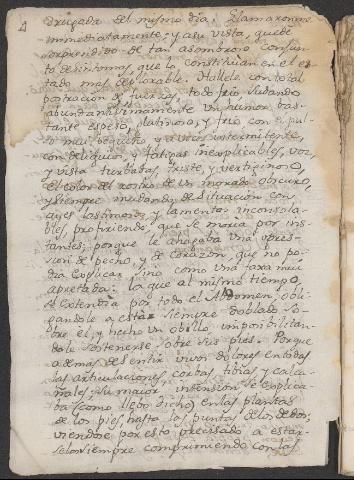 drugada del mismo dia. Llamaronme
immediatamente; y a su vista, quedè
sorprendido de tan asombroso conjun
to de sintomas, que lo constituian en el es
tado mas deplorable. Hallele con total
postracion de fuerzas, todo frio sudando
abundantissimamente un humor bas
tante espeso, glutinoso, y frio con el pul
so mui pequeño y a veces intermitente,
con deliquios, y fatigas inexplicables, voz,
y vista turbadas, triste, y vertiginoso,
el color del rostro de un morado obscuro,
y siempre mudando de situacion con
ayes lastimosos y lamentos inconsola
bles, profiriendo, que se moria por ins
tantes; porque le ahogaba una opres
sion de pecho, y de corazon, que no po
dia explicar sino como una faxa mui
apretada: la que al mismo tiempo,
se extendia por todo el Abdomen, obli
gandole a estar siempre doblado so
bre el, y hecho un obillo, imposibilitan
dole sostenerse sobre sus pies. Porque
ademas de sentir vivos dolores en todas
las articulaciones, corbas, tibias, y calca
ñales; su maior intension se explica
ba (como llebo dicho) en las plantas
de los pies, hasta las puntas de los dedos;
viendose por esto precisado a estar
selos siempre comprimiendo con las